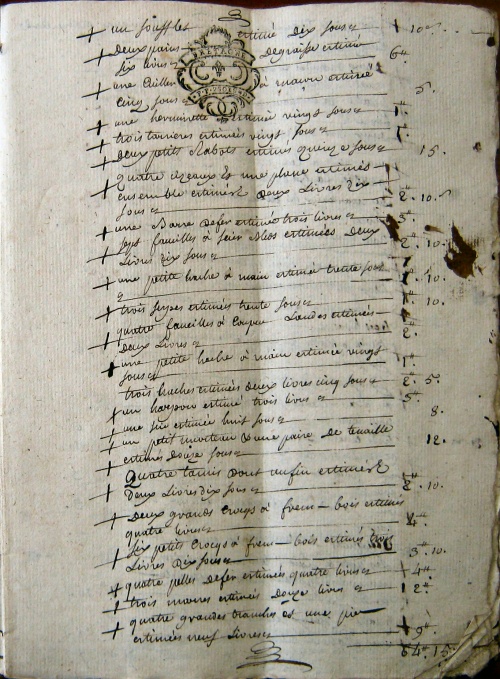 + un soufflet estimé dix sous + 10s
+ deux pains degraisse estimé
six livres 6
+ une Cuillere a main estimée
Cinq sous 5.
+ une herminette estimée vingt sous 1
+ trois tarrieres estimées vingt sous 1
+ Deux petits Rabots estimés quinze sous 15.
+ quatre Cizeaux & une plane estimés
ensemble estimés deux Livres dix
sous 2. 10.
+ une Barre defer estimée trois livres 3
+ sept faucilles a sier Bleds estimées deux
Livres dix sous 2. 10.
+ une petite hache a main estimée trente sous
1. 10
+ trois estimées trente sous 1. 10.
+ quatre faucilles a Couper Landes estimés
Deux Livres 2.
+ une petite hache a main estimée vingt
sous 1
trois haches estimées deux livres cinq sous 2. 5.
+ un harpon estimé trois livres
+ une estimée huit sous 8.
+ un petit marteau & une paire de tenaille
estimés douze sous 12.
+ Quatre tamis dont un fin estimés
Deux Livres dix sous 2. 10.
+ Deux grands Crocqs a bois estimés
quatre livres 4
+ six petits Crocqs a bois estimés trois
Livres dix sous 3. 10.
+ quatre pelles defer estimées quatre livres + 4
+ trois estimées Deux livres 2
+ quatre grandes tranches et une
estimées neuf Livres + 9
64. 15